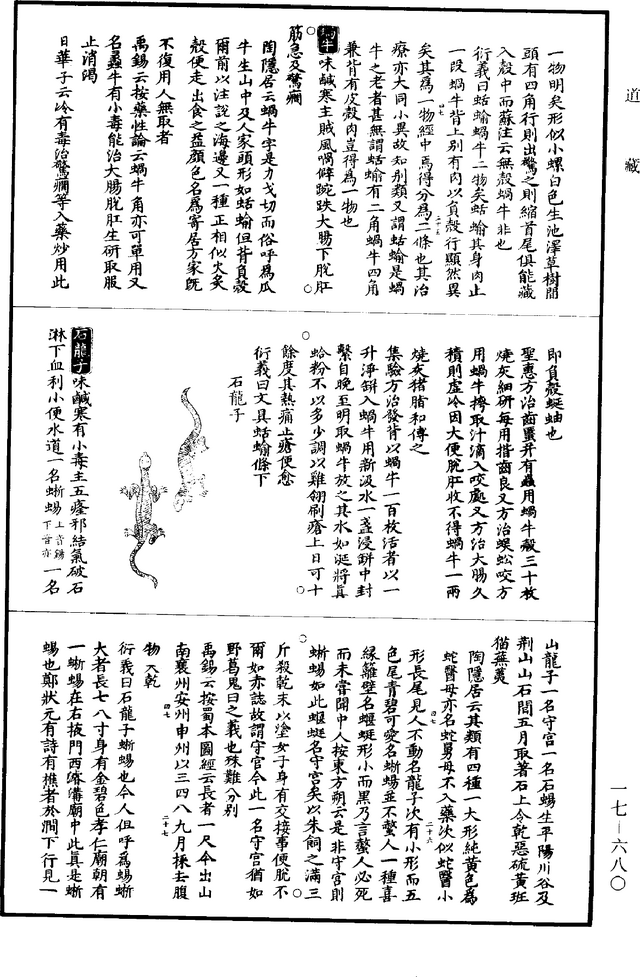 道藏
一物明矣形似小螺白色生池澤草樹間
頭有四角行則出驚之則縮首尾俱能藏
入殼中而蘇注云無殼蝸牛非也
衍義曰蛞蝓蝸牛二物矣蛞蝓其身肉止
一段蝸牛背上別有肉以負殼行顯然異
矣其為一物經中焉得分為二條也其治
療亦大同小異故知別類又謂蛞蝓是蝸
牛之老者甚無謂蛞蝓有二角蝸牛四角
兼背有皮殼肉豈得為一物也
蝸牛味鹹寒主賊風喎僻踠跌大腸下脫肛
筋急及驚癇
陶隱居云蝸牛字是力戈切而俗呼為瓜
牛生山中及人家頭形如蛞蝓但背負殼
爾前以注說之海邊又一種正相似火炙
殼便走出食之益顏色名為寄居方家既
不復用人無取者
禹錫云按藥性論云蝸牛角亦可單用又
名蠡牛有小毒能治大腸脫肛生研取服
止消渴
日華子云冷有毒治驚癇等入藥炒用此
即負殼蜒蚰也
聖惠方治齒䘌并有蟲用蝸牛殼三十枚
燒灰細研每用揩齒良又方治蜈蚣咬方
用蝸牛搾取汁滴入咬處又方治大腸久
積則虛冷因大便脫肛收不得蝸牛一兩
燒灰猪脂和傅之
集驗方治發背以蝸牛一百枚活者以一
升淨缾入蝸牛用新汲水一盞浸缾中封
繫自晚至明取蝸牛放之其水如涎將真
蛤粉不以多少調以雞翎刷瘡上日可十
餘度其熱痛止瘡便愈
衍義曰文具蛞蝓條下
石龍子
石龍子味鹹寒有小毒主五癃邪結氣破石
淋下血利小便水道一名蜥蜴上音錫下音亦一名
山龍子一名守宮一名石蜴生平陽川谷及
荆山山石間五月取著石上令乾惡硫黃班
猫蕪荑
陶隱居云其類有四種一大形純黃色為
蛇醫母亦名蛇舅母不入藥次似蛇醫小
形長尾見人不動名龍子次有小形而五
色尾青碧可愛名蜥蜴並不螫人一種喜
緣籬壁名蝘蜓形小而黑乃言螫人必死
而未嘗聞中人按東方朔云是非守宮則
蜥蜴如此蝘蜓名守宮矣以朱飼之滿三
斤殺乾末以塗女子身有交接事便脫不
爾如赤誌故謂守宮今此一名守宮猶如
野葛鬼臼之義也殊難分別
禹錫云按蜀本圖經云長者一尺今出山
南襄州安州申州以三四八九月採去腹
物火乾
衍義曰石龍子蜥蜴也今人但呼為蜴蜥
大者長七八寸身有金碧色孝仁廟朝有
一蜥蜴在右掖門西濬溝廟中此真是蜥
蜴也鄭狀元有詩有樵者於澗下行見一
一七—六八〇